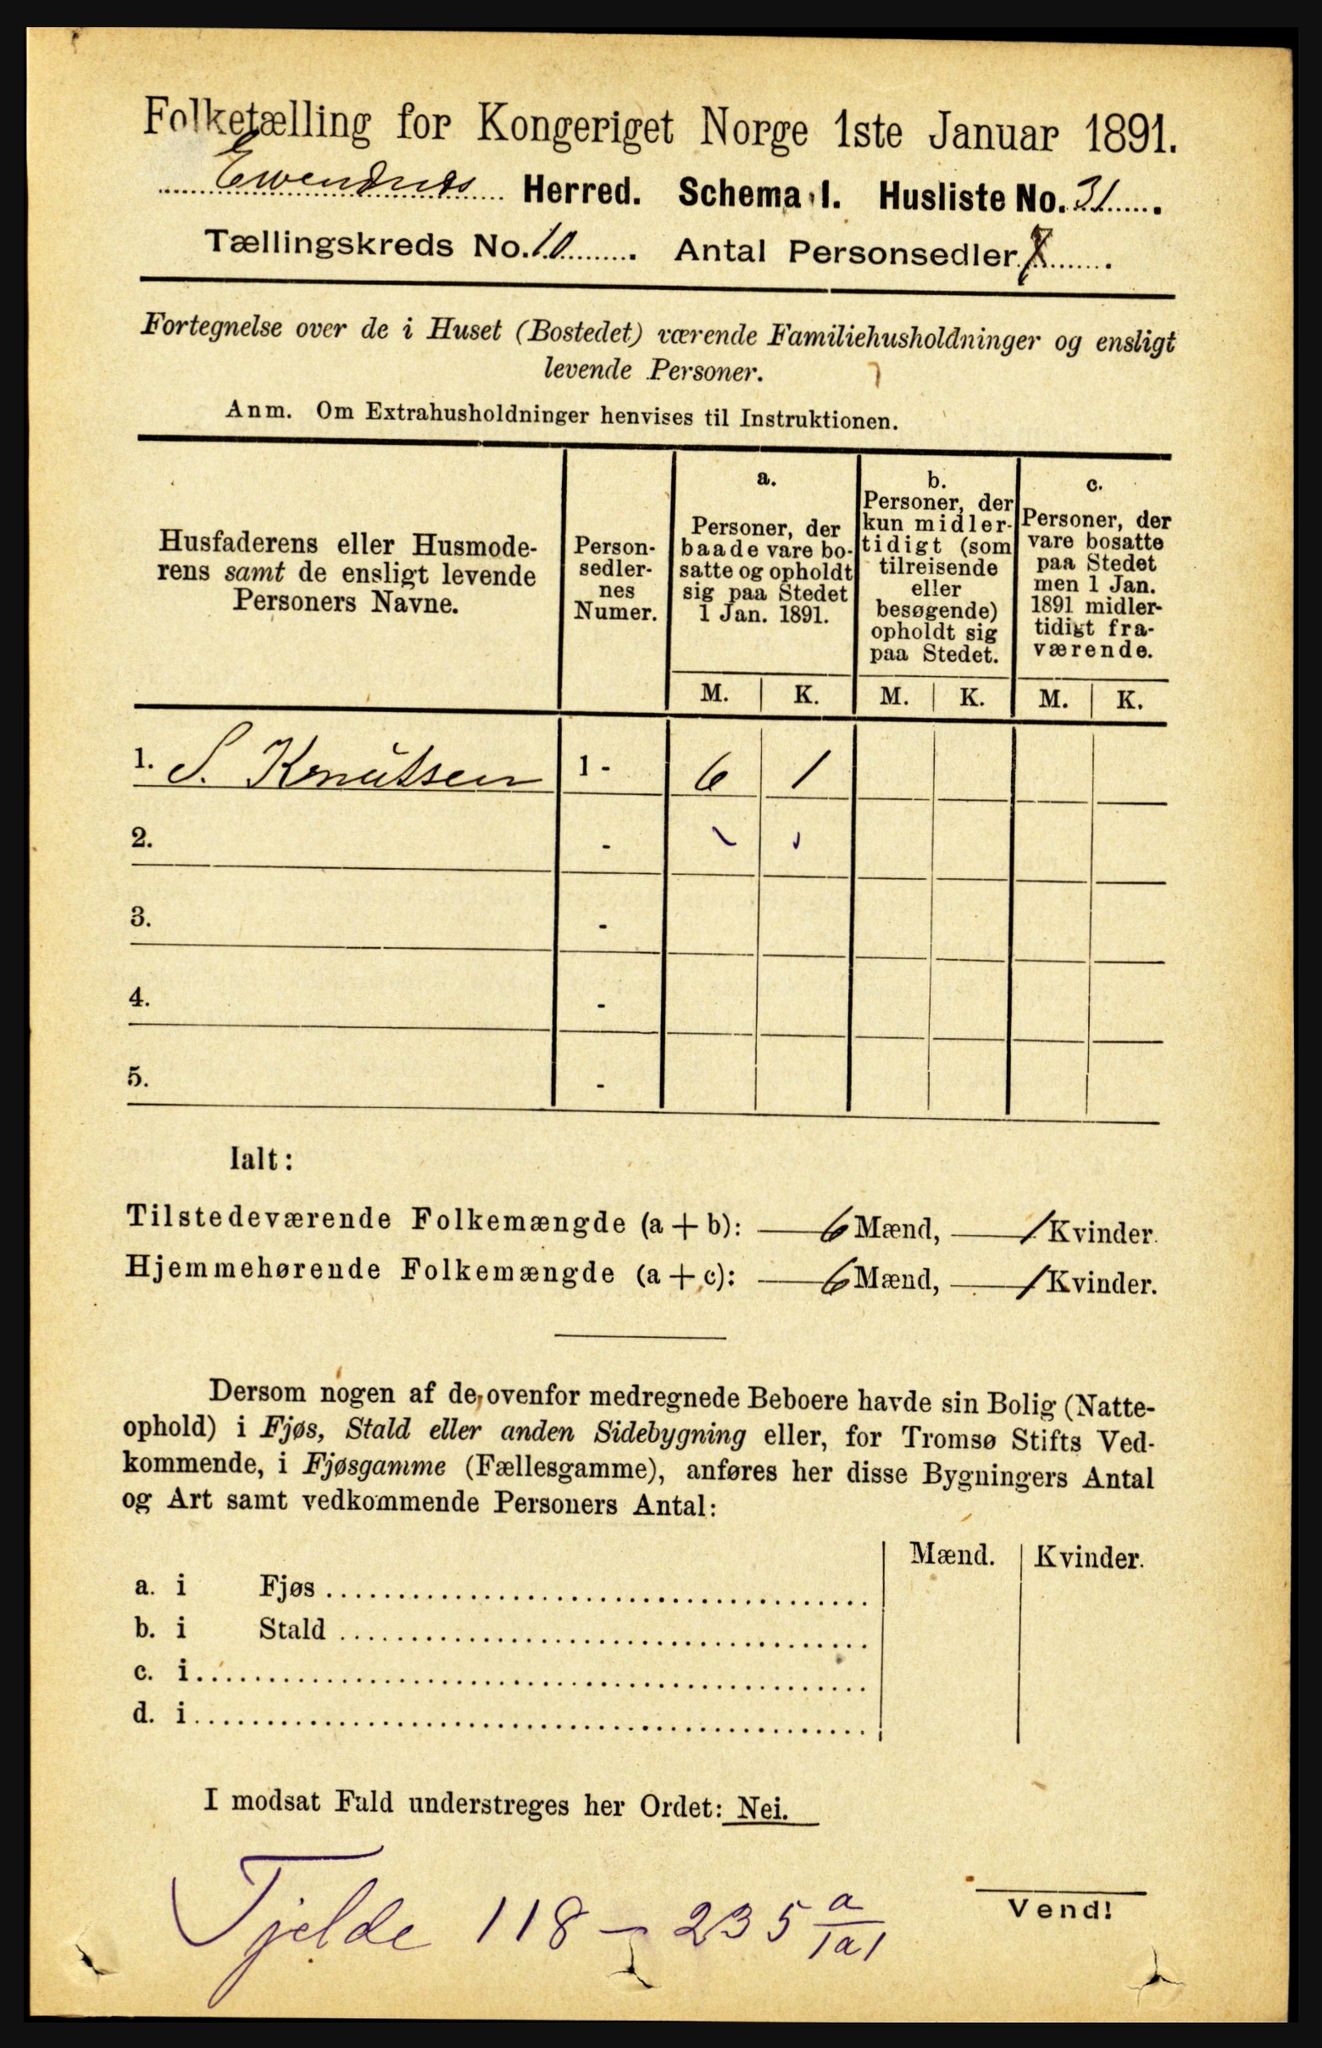 Folketælling for Kongeriget Norge 1ste Januar 1891.
Evendnes Herred. Schema 1. Husliste No. 31
Tællingskreds No. 10 . Antal Personsedler 7 .
Fortegnelse over de i Huset (Bostedet) værende Familiehusholdninger og ensligt
levende Personer.
Anm. Om Extrahusholdninger henvises til Instruktionen.
Husfaderens eller Husmode-
rens samt de ensligt levende
Personers Navne.
Person-
sedler-
nes
Numer.
a.
Personer, der
baade vare bo-
satte og opholdt
sig paa Stedet
1 Jan. 1891.
b.
Personer, der
kun midler-
tidigt (som
tilreisende
eller
besøgende)
opholdt sig
paa Stedet.
c.
Personer, der
vare bosatte
paa Stedet
men 1 Jan.
1891 midler-
tidigt fra-
værende.
M. K. M. K. M. K.
1. S. Knutsen 1 - 6 1
2. -
3. -
4. -
5. -
Ialt:
Tilstedeværende Folkemængde (a + b): 6 Mænd, 1 Kvinder.
Hjemmehørende Folkemængde (a + c): 6 Mænd, 1 Kvinder.
Dersom nogen af de ovenfor medregnede Beboere havde sin Bolig (Natte-
ophold) i Fjøs, Stald eller anden Sidebygning eller, for Tromsø Stifts Ved-
kommende, i Fjøsgamme (Fællesgamme), anføres her disse Bygningers Antal
og Art samt vedkommende Personers Antal:
Mænd. Kvinder.
a. i Fjøs
b. i Stald
c. i
d. i
I modsat Fald understreges her Ordet: Nei.
Tjelde 118 - 235 a/1a1
Vend!